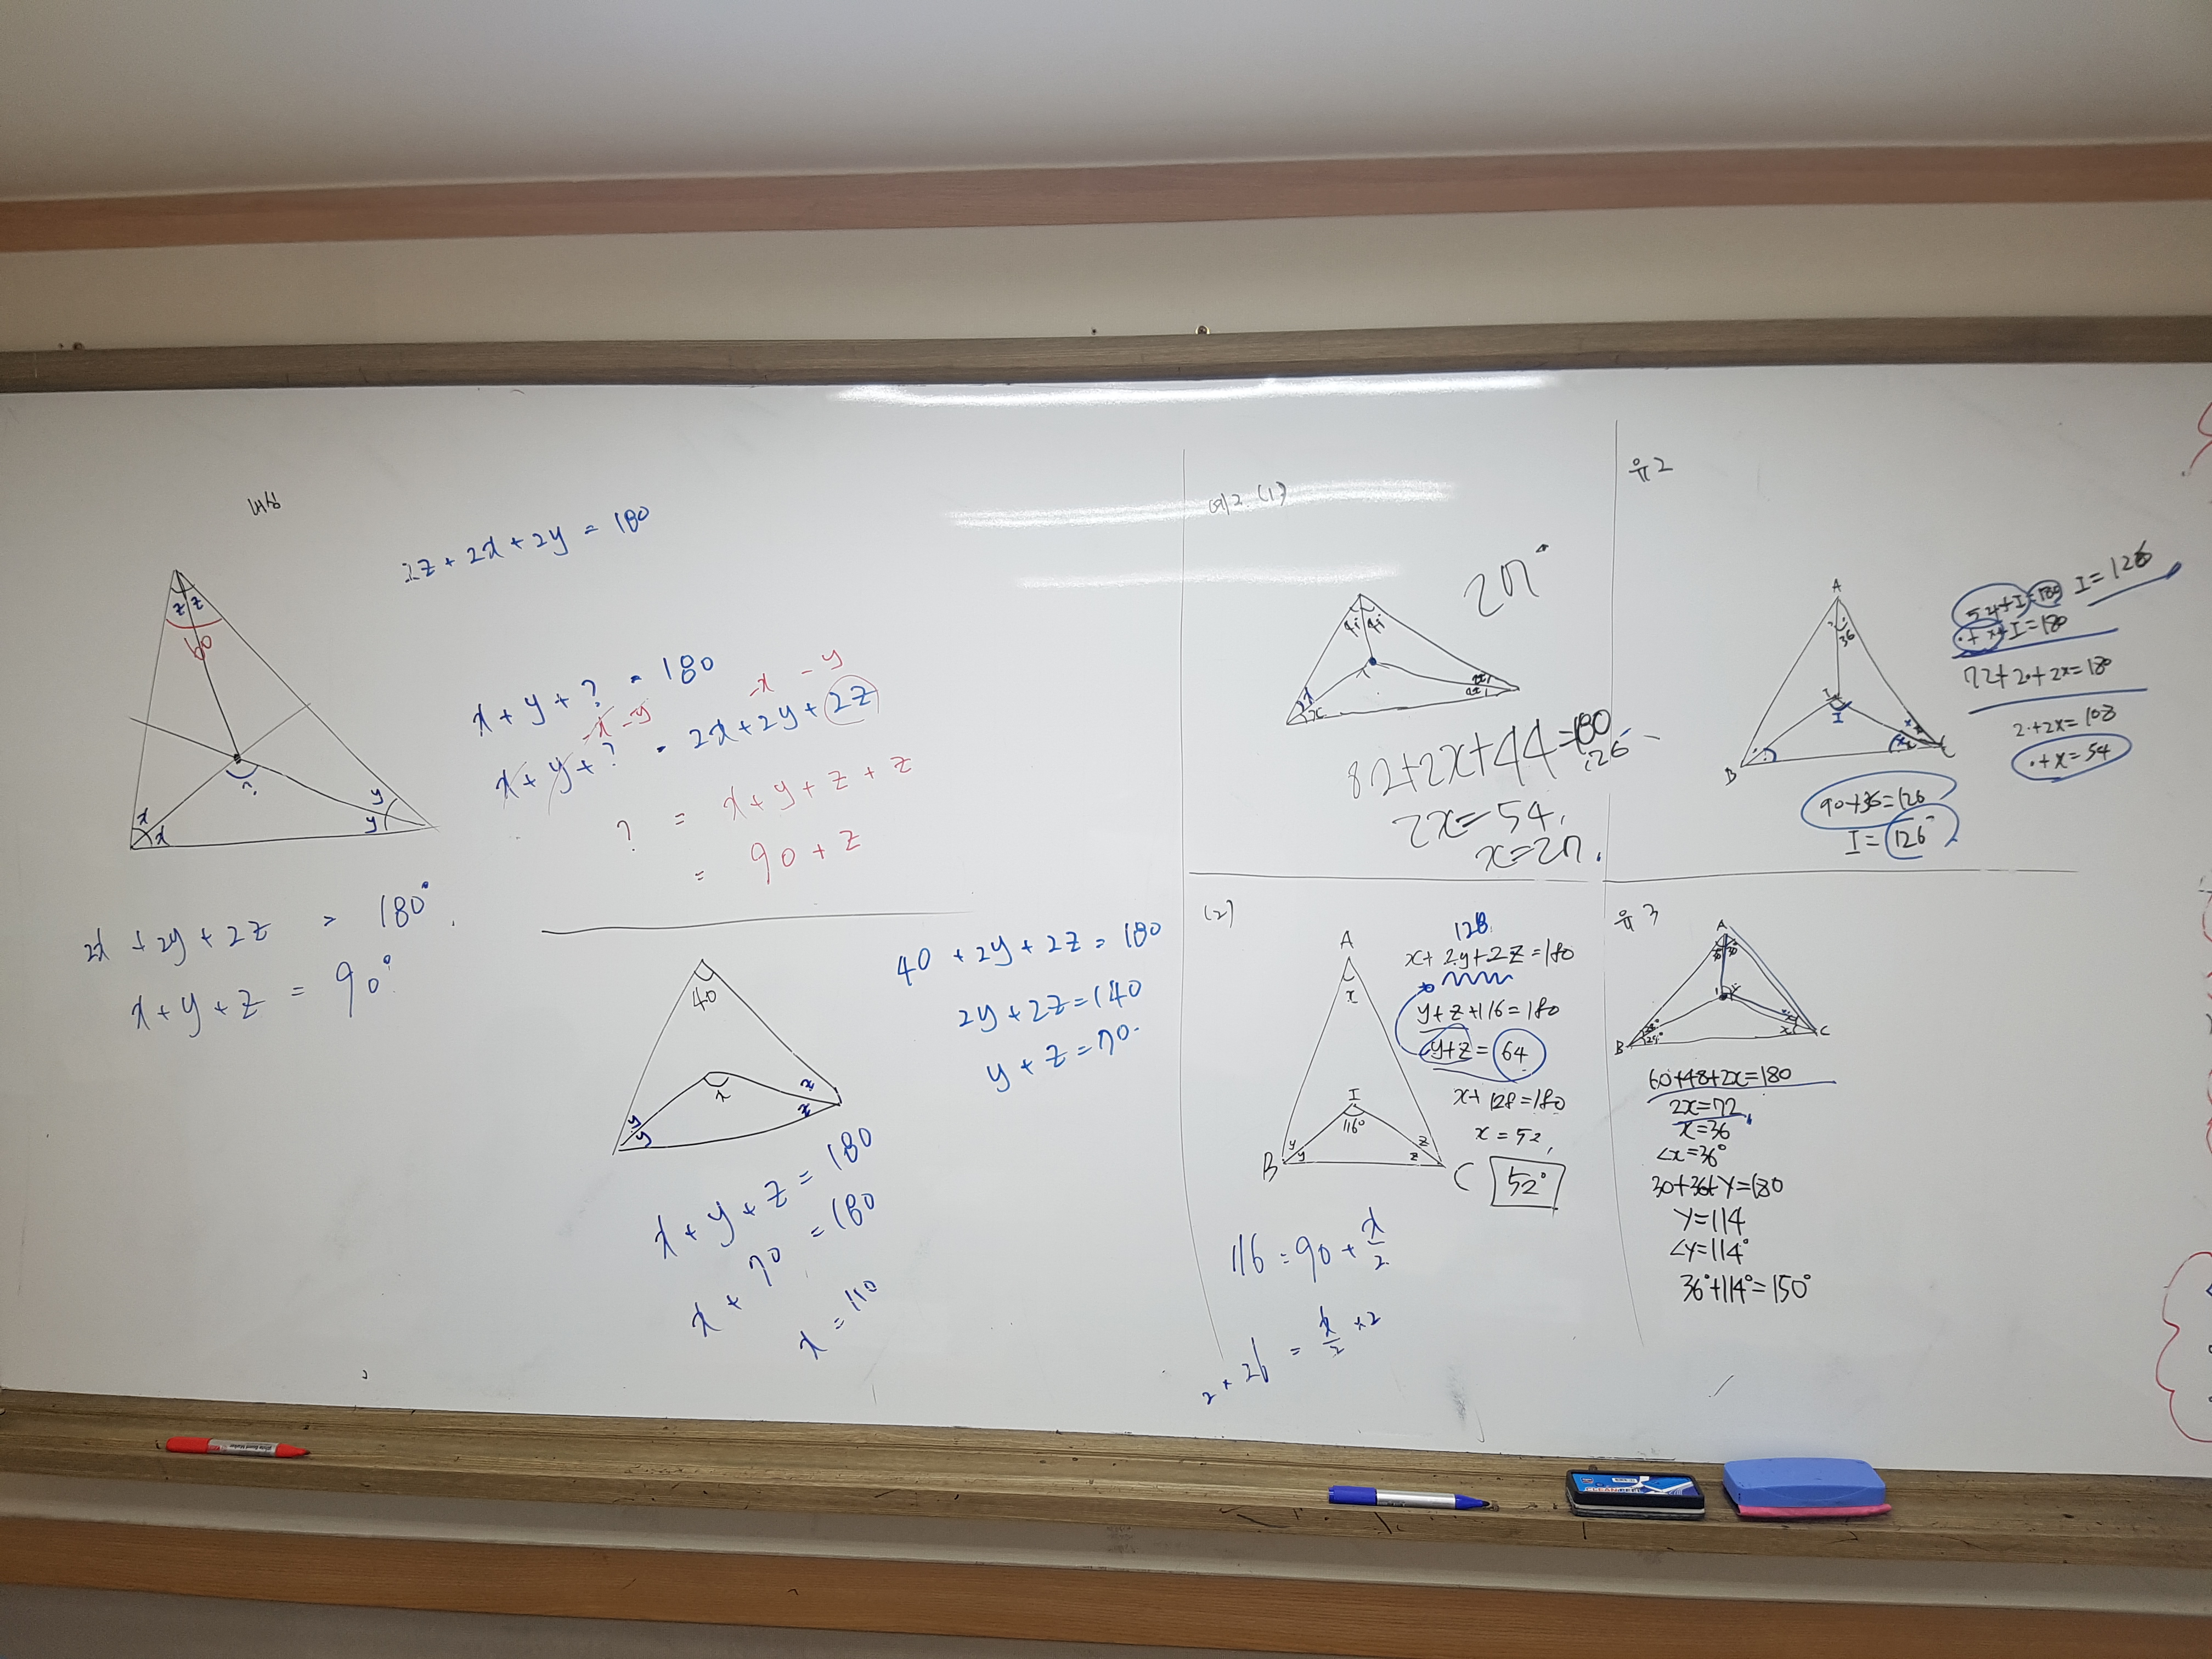 내심
2z + 2x + 2y = 180
z z
60
?
x x
y y
x + y + ? = 180
-x -y
-x -y
x + y + ? = 2x + 2y + 2z
? = x + y + z + z
= 90 + z
2x + 2y + 2z = 180°
x + y + z = 90°
40
x
y y
z z
40 + 2y + 2z = 180
2y + 2z = 140
y + z = 70
x + y + z = 180
x + 70 = 180
x = 110
예2. (1)
27°
41 41
x
x
22
22
82+2x+44=180
126
2x=54
x=27.
(2)
A
x
I
116°
y y
z z
B
C
128
x+2y+2z=180
y+z+116=180
y+z = 64
x+128=180
x=52
52°
116 = 90 + x/2
2 × 26 = x/2 × 2
유2
A
36
I
B
C
54+I=180
I=126
·+x+I=180
72+2·+2x=180
2·+2x=108
·+x=54
90+36=126
I=126°
유3
A
30° 30°
y
24°
24°
x
x
B
C
60+48+2x=180
2x=72
x=36
∠x=36°
30+36+y=180
y=114
∠y=114°
36°+114°=150°